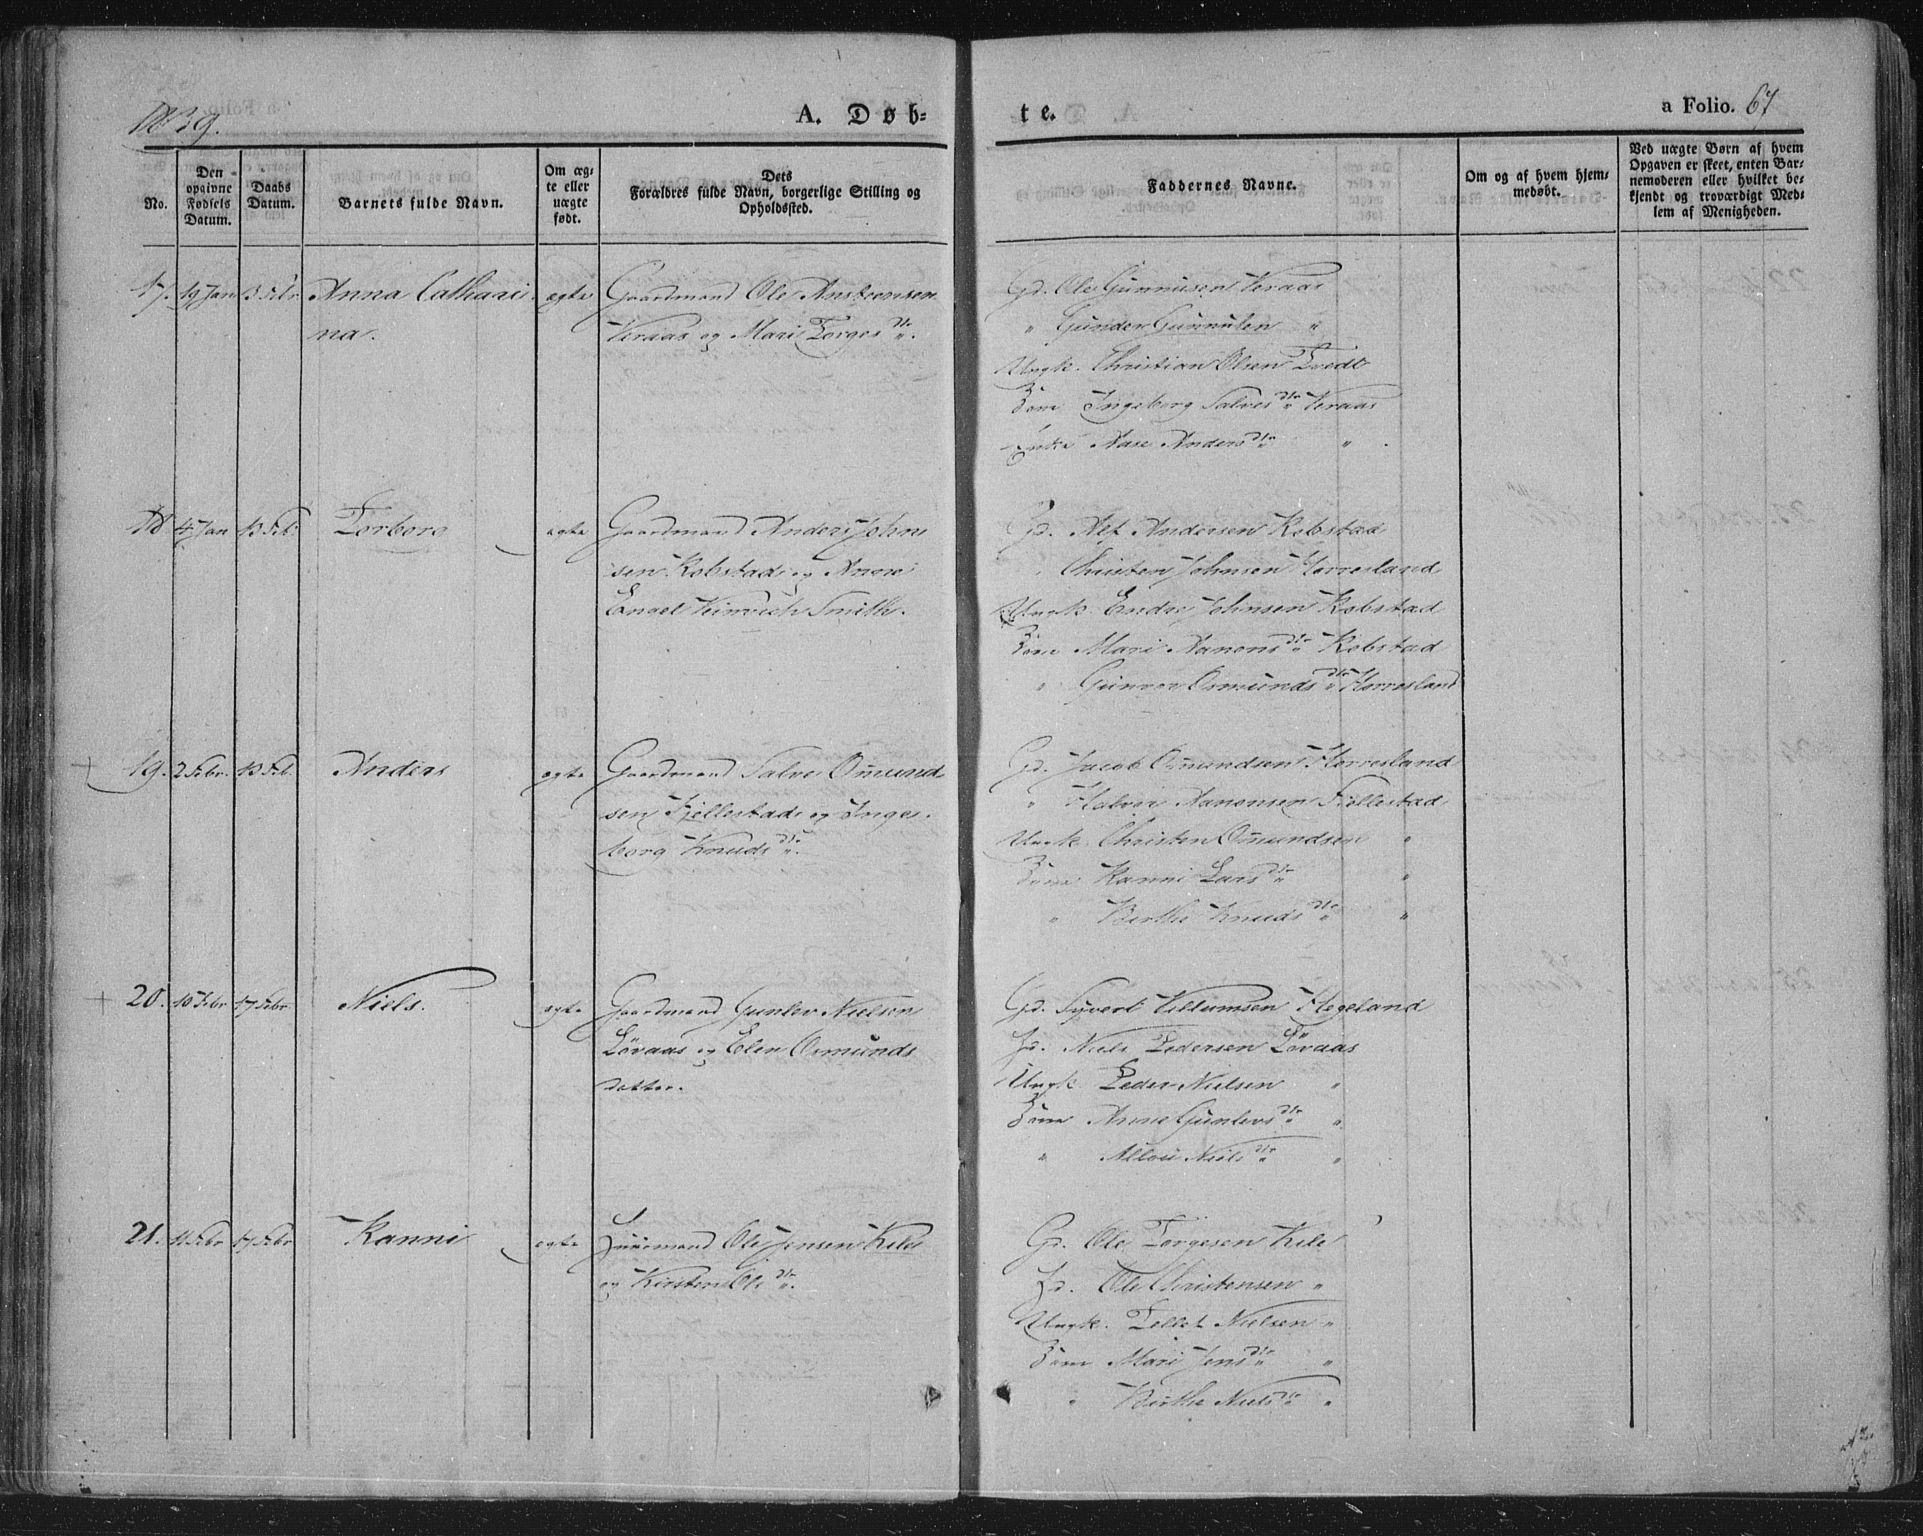 1839.
A. Døb-
te.
a Folio. 67
No.
Den opgivne Fødsels Datum.
Daabs Datum.
Barnets fulde Navn.
Om æg-
te eller
uægte
født.
Dets
Forældres fulde Navn, borgerlige Stilling og
Opholdssted.
Faddernes Navne.
Om og af hvem hjem-
medøbt.
Ved uægte Børn af hvem
Opgaven er skeet, enten Bar-
nemoderen eller hvilket be-
kjendt og troværdigt Med-
lem af Menigheden.
17. 19 Jan 13 Febr. Anna Cathari- ægte Gaardmand Ole Anstensen
na. Veraas og Mari Torgesdtr.
Gd. Ole Gunnusen Veraas
" Gunder Gunnulsen "
Ungk. Christian Olsen Tvedt
Kone Ingeborg Salvesdtr Veraas
Aase Andersdtr "
18 4 Jan 13 Feb. Torborg ægte Gaardmand Anders John-
sen Robstad og Anne
Engel Heinrich Smith.
Gd. Alf Andersen Robstad
Christen Johnsen Horresland
Ungk. Endre Johnsen Robstad
Kone Mari Aanonsdtr Robstad
" Gunvor Osmundsdtr Horresland
19. 2 Febr. 13 Feb. Anders ægte Gaardmand Salve Omund-
sen Fjellestad og Inge-
borg Knudsdtr.
Gd. Jacob Omundsen Horresland
" Halvor Aanonsen Fjellestad
Ungk. Christen Omundsen "
Kone Ranni Larsdtr "
" Berthe Knudsdtr "
20. 10 Febr 17 Febr. Niels. ægte Gaardmand Gunlev Nielsen
Løvaas og Elen Osmunds
datter.
Gd. Syvert Villumsen Hegeland
Hd. Niels Pedersen Løvaas
Ungk Peder Nielsen "
Kone Anne Gunlevsdtr "
" Nielsdtr "
21. 11 Febr 17 Febr Ranni ægte Huusmand Ole Jensen Kile
og Kirsten Olsdtr.
Gd. Ole Torgesen Kile
Hd. Ole Christensen "
Ungk. Tellef Nielsen "
Kone Mari Jensdtr "
" Berthe Nielsdtr "